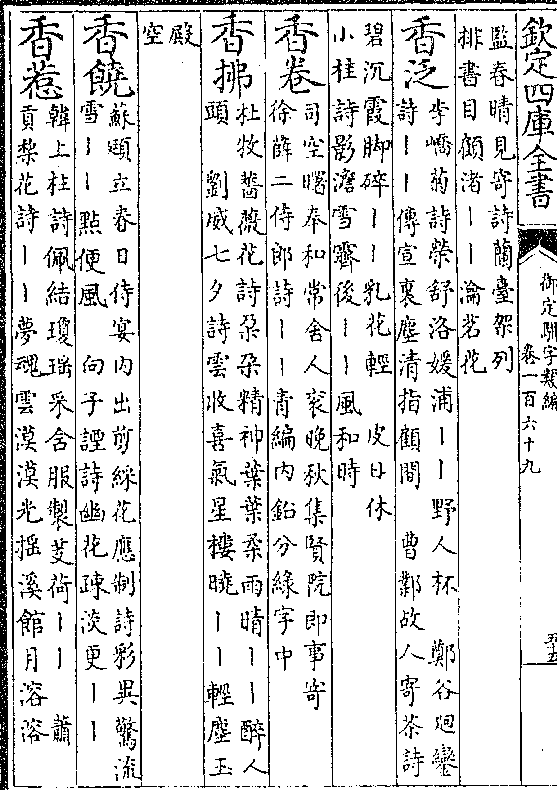 欽定四庫全書
御定駢字類編
卷一百六十九
五十五
監春晴見寄詩蘭臺架列
排書目顧渚丨丨瀹茗花
香泛
李嶠菊詩榮舒洛媛浦丨丨野人杯　鄭谷迴鑾
詩丨丨傳宣裛塵清指顧間　曹鄴故人寄茶詩
碧沉霞脚碎丨丨乳花輕　皮日休
小桂詩影澹雪霽後丨丨風和時
香卷
司空曙奉和常舍人衮晚秋集賢院即事寄
徐薛二侍郎詩丨丨青編内鉛分綠字中
香拂
杜牧薔薇花詩朶朶精神葉葉柔雨晴丨丨醉人
頭　劉威七夕詩雲收喜氣星樓曉丨丨輕塵玉
殿
空
香饒
蘇頲立春日侍宴内出剪綵花應制詩彩異驚流
雪丨丨點便風　向子諲詩幽花疎淡更丨丨
香惹
韓上桂詩佩結瓊瑶采含服製芰荷丨丨　蕭
貢梨花詩丨丨夢魂雲漠漠光揺溪館月溶溶